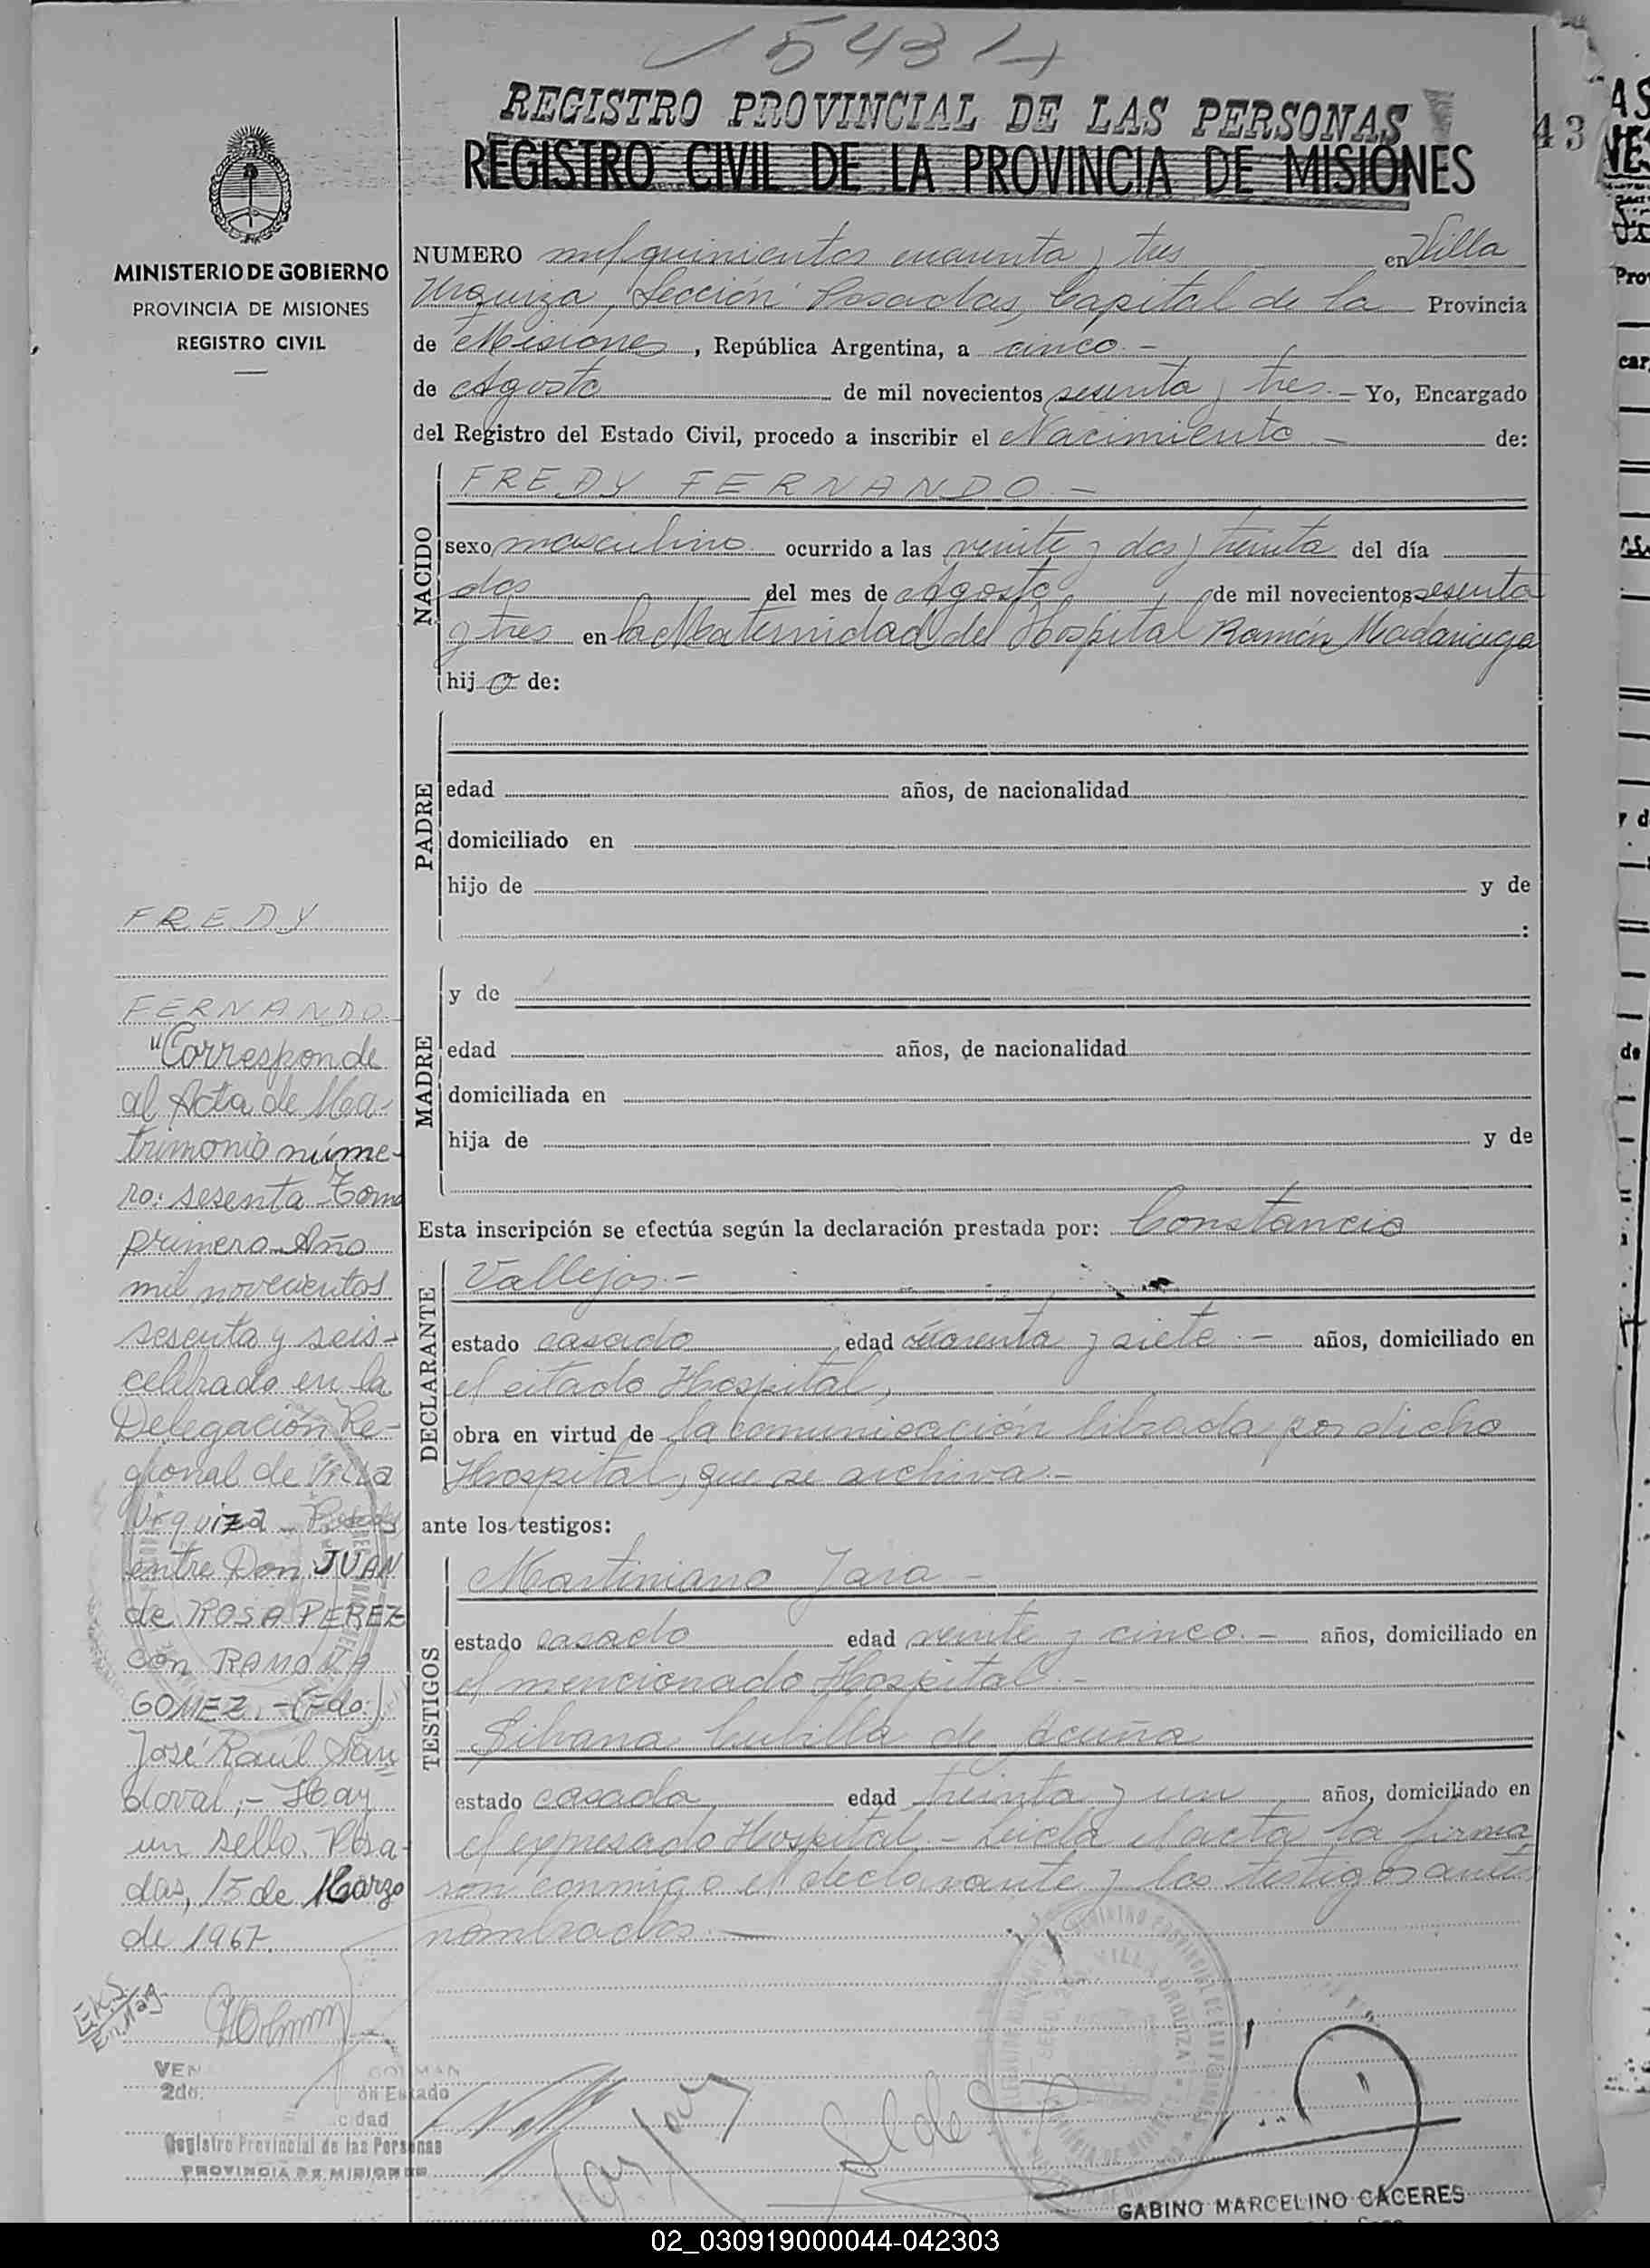 1543
REGISTRO PROVINCIAL DE LAS PERSONAS
REGISTRO CIVIL DE LA PROVINCIA DE MISIONES
43
MINISTERIO DE GOBIERNO
PROVINCIA DE MISIONES
REGISTRO CIVIL
NUMERO mil quinientos cuarenta y tres en Villa
Urquiza, Sección Posadas, Capital de la Provincia
de Misiones, República Argentina, a cinco.-
de Agosto de mil novecientos sesenta y tres.- Yo, Encargado
del Registro del Estado Civil, procedo a inscribir el Nacimiento.- de:
NACIDO
FREDY FERNANDO.-
sexo masculino ocurrido a las veinte y dos y treinta del día
dos del mes de Agosto de mil novecientos sesenta
y tres en la Maternidad del Hospital Ramón Madariaga
hijo de:
PADRE
edad años, de nacionalidad
domiciliado en
hijo de y de
:
MADRE
y de
edad años, de nacionalidad
domiciliada en
hija de y de
Esta inscripción se efectúa según la declaración prestada por: Constancio
DECLARANTE
Vallejos.-
estado casado edad cuarenta y siete.- años, domiciliado en
el citado Hospital,
obra en virtud de la comunicación librada por dicho
Hospital, que se archiva.-
ante los testigos:
TESTIGOS
Martiniano Jara -
estado casado edad veinte y cinco.- años, domiciliado en
el mencionado Hospital.-
Silvana Cubilla de Acuña
estado casada edad treinta y un años, domiciliado en
el expresado Hospital.- Leída el acta la firma
ron conmigo el declarante y los testigos ante
nombrados.-
FREDY
FERNANDO.
"Corresponde
al Acta de Ma-
trimonio núme-
ro: sesenta-Tomo
primero-Año
mil novecientos
sesenta y seis-
celebrado en la
Delegación Re-
gional de Villa
Urquiza - Posadas
entre Don JUAN
de ROSA PEREZ
con RAMONA
GOMEZ.-(Fdo:)
José Raúl San
doval.- Hay
un sello. Posa-
das, 15 de Marzo
de 1967.
2do.
Registro Provincial de las Personas
PROVINCIA DE MISIONES
GABINO MARCELINO CACERES
02_030919000044-042303